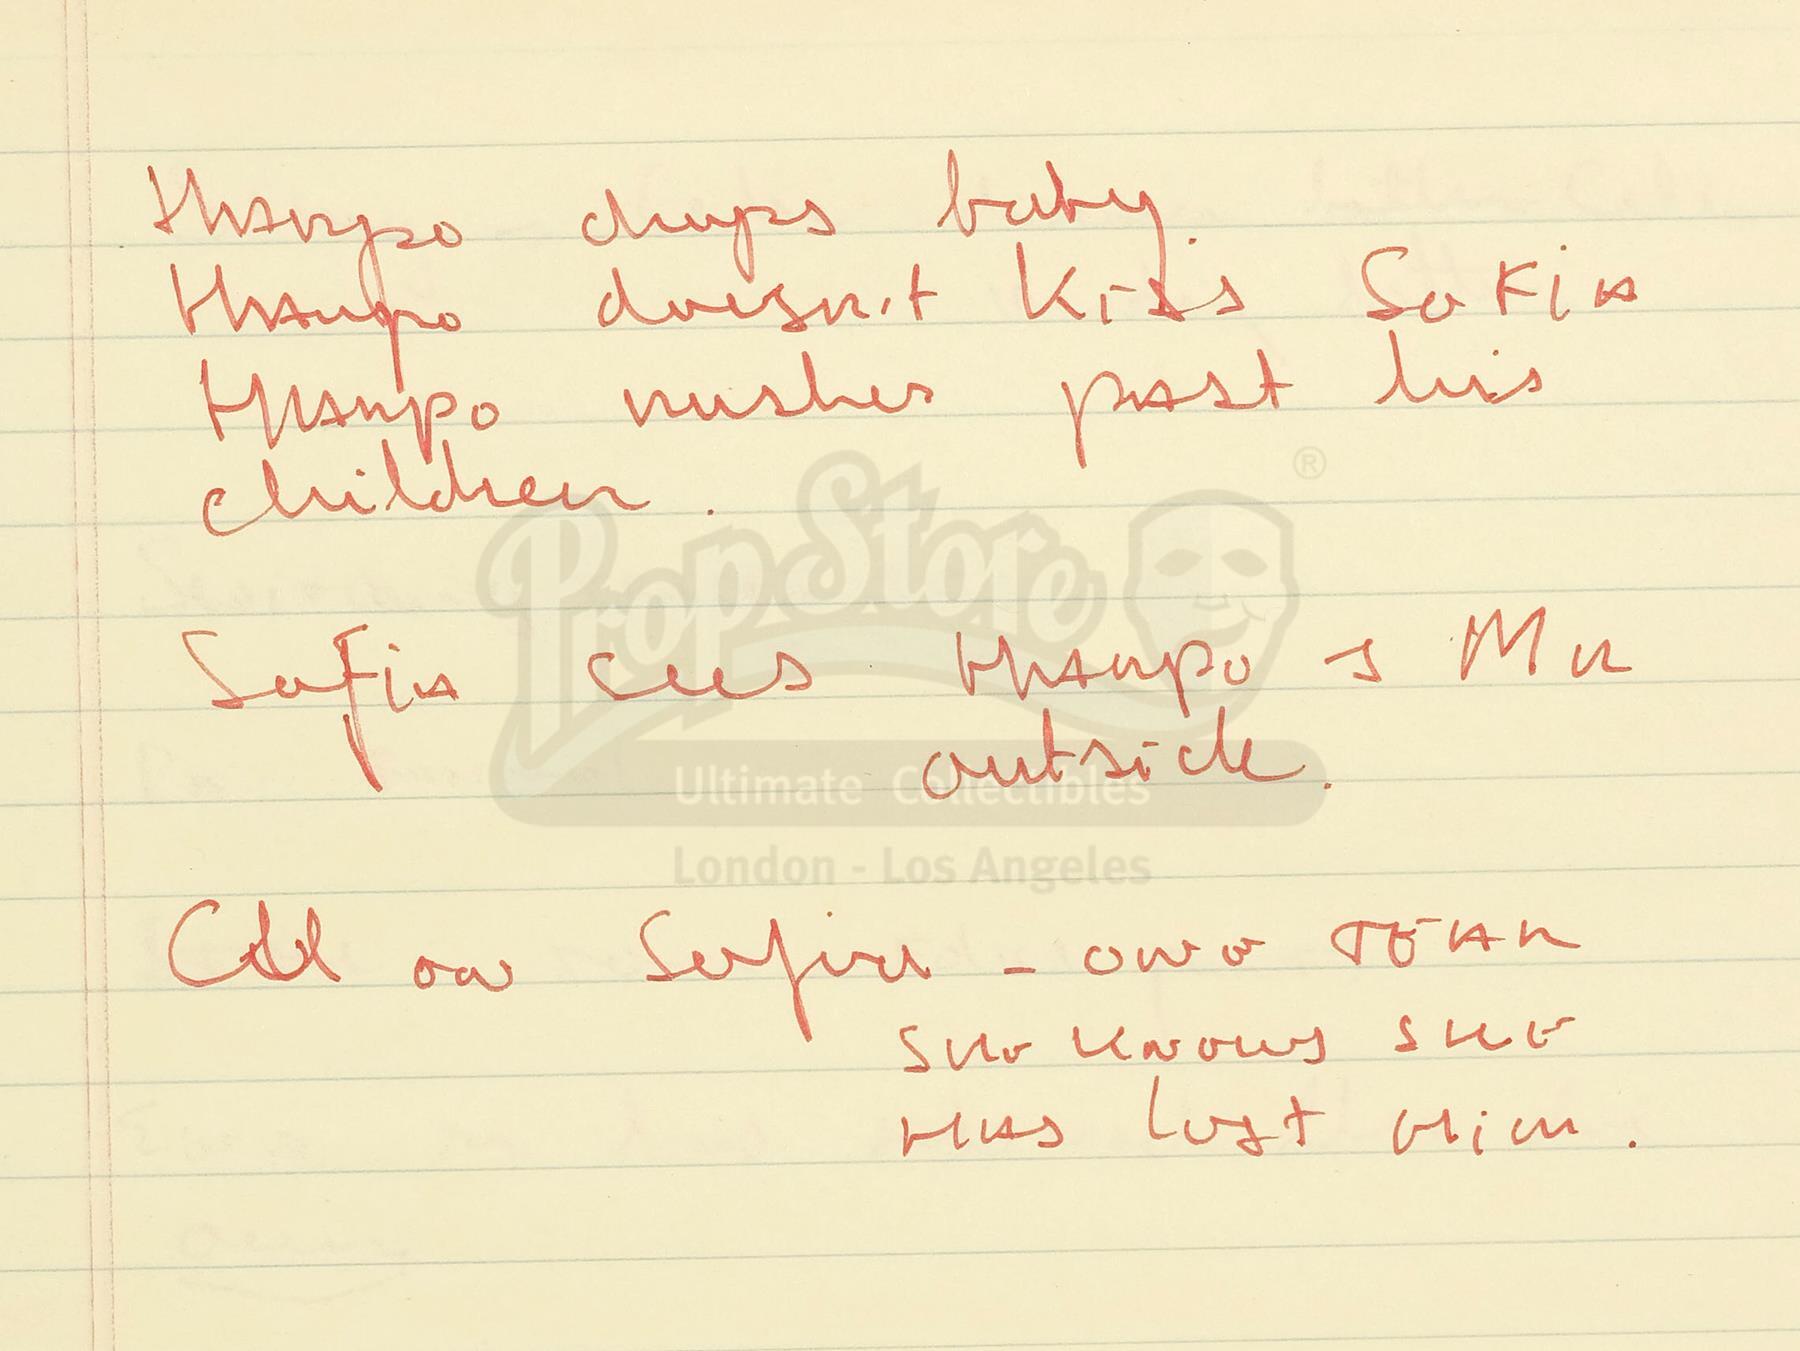 Harpo drops baby.
Harpo doesn't kiss Sofia
Harpo rushes past his
children.
PropStore ®
Sofia sees Harpo & Mr
outside.
Ultimate Collectibles
London - Los Angeles
on Sofia - one TEAR
SHE KNOWS SHE
HAS lost Him.